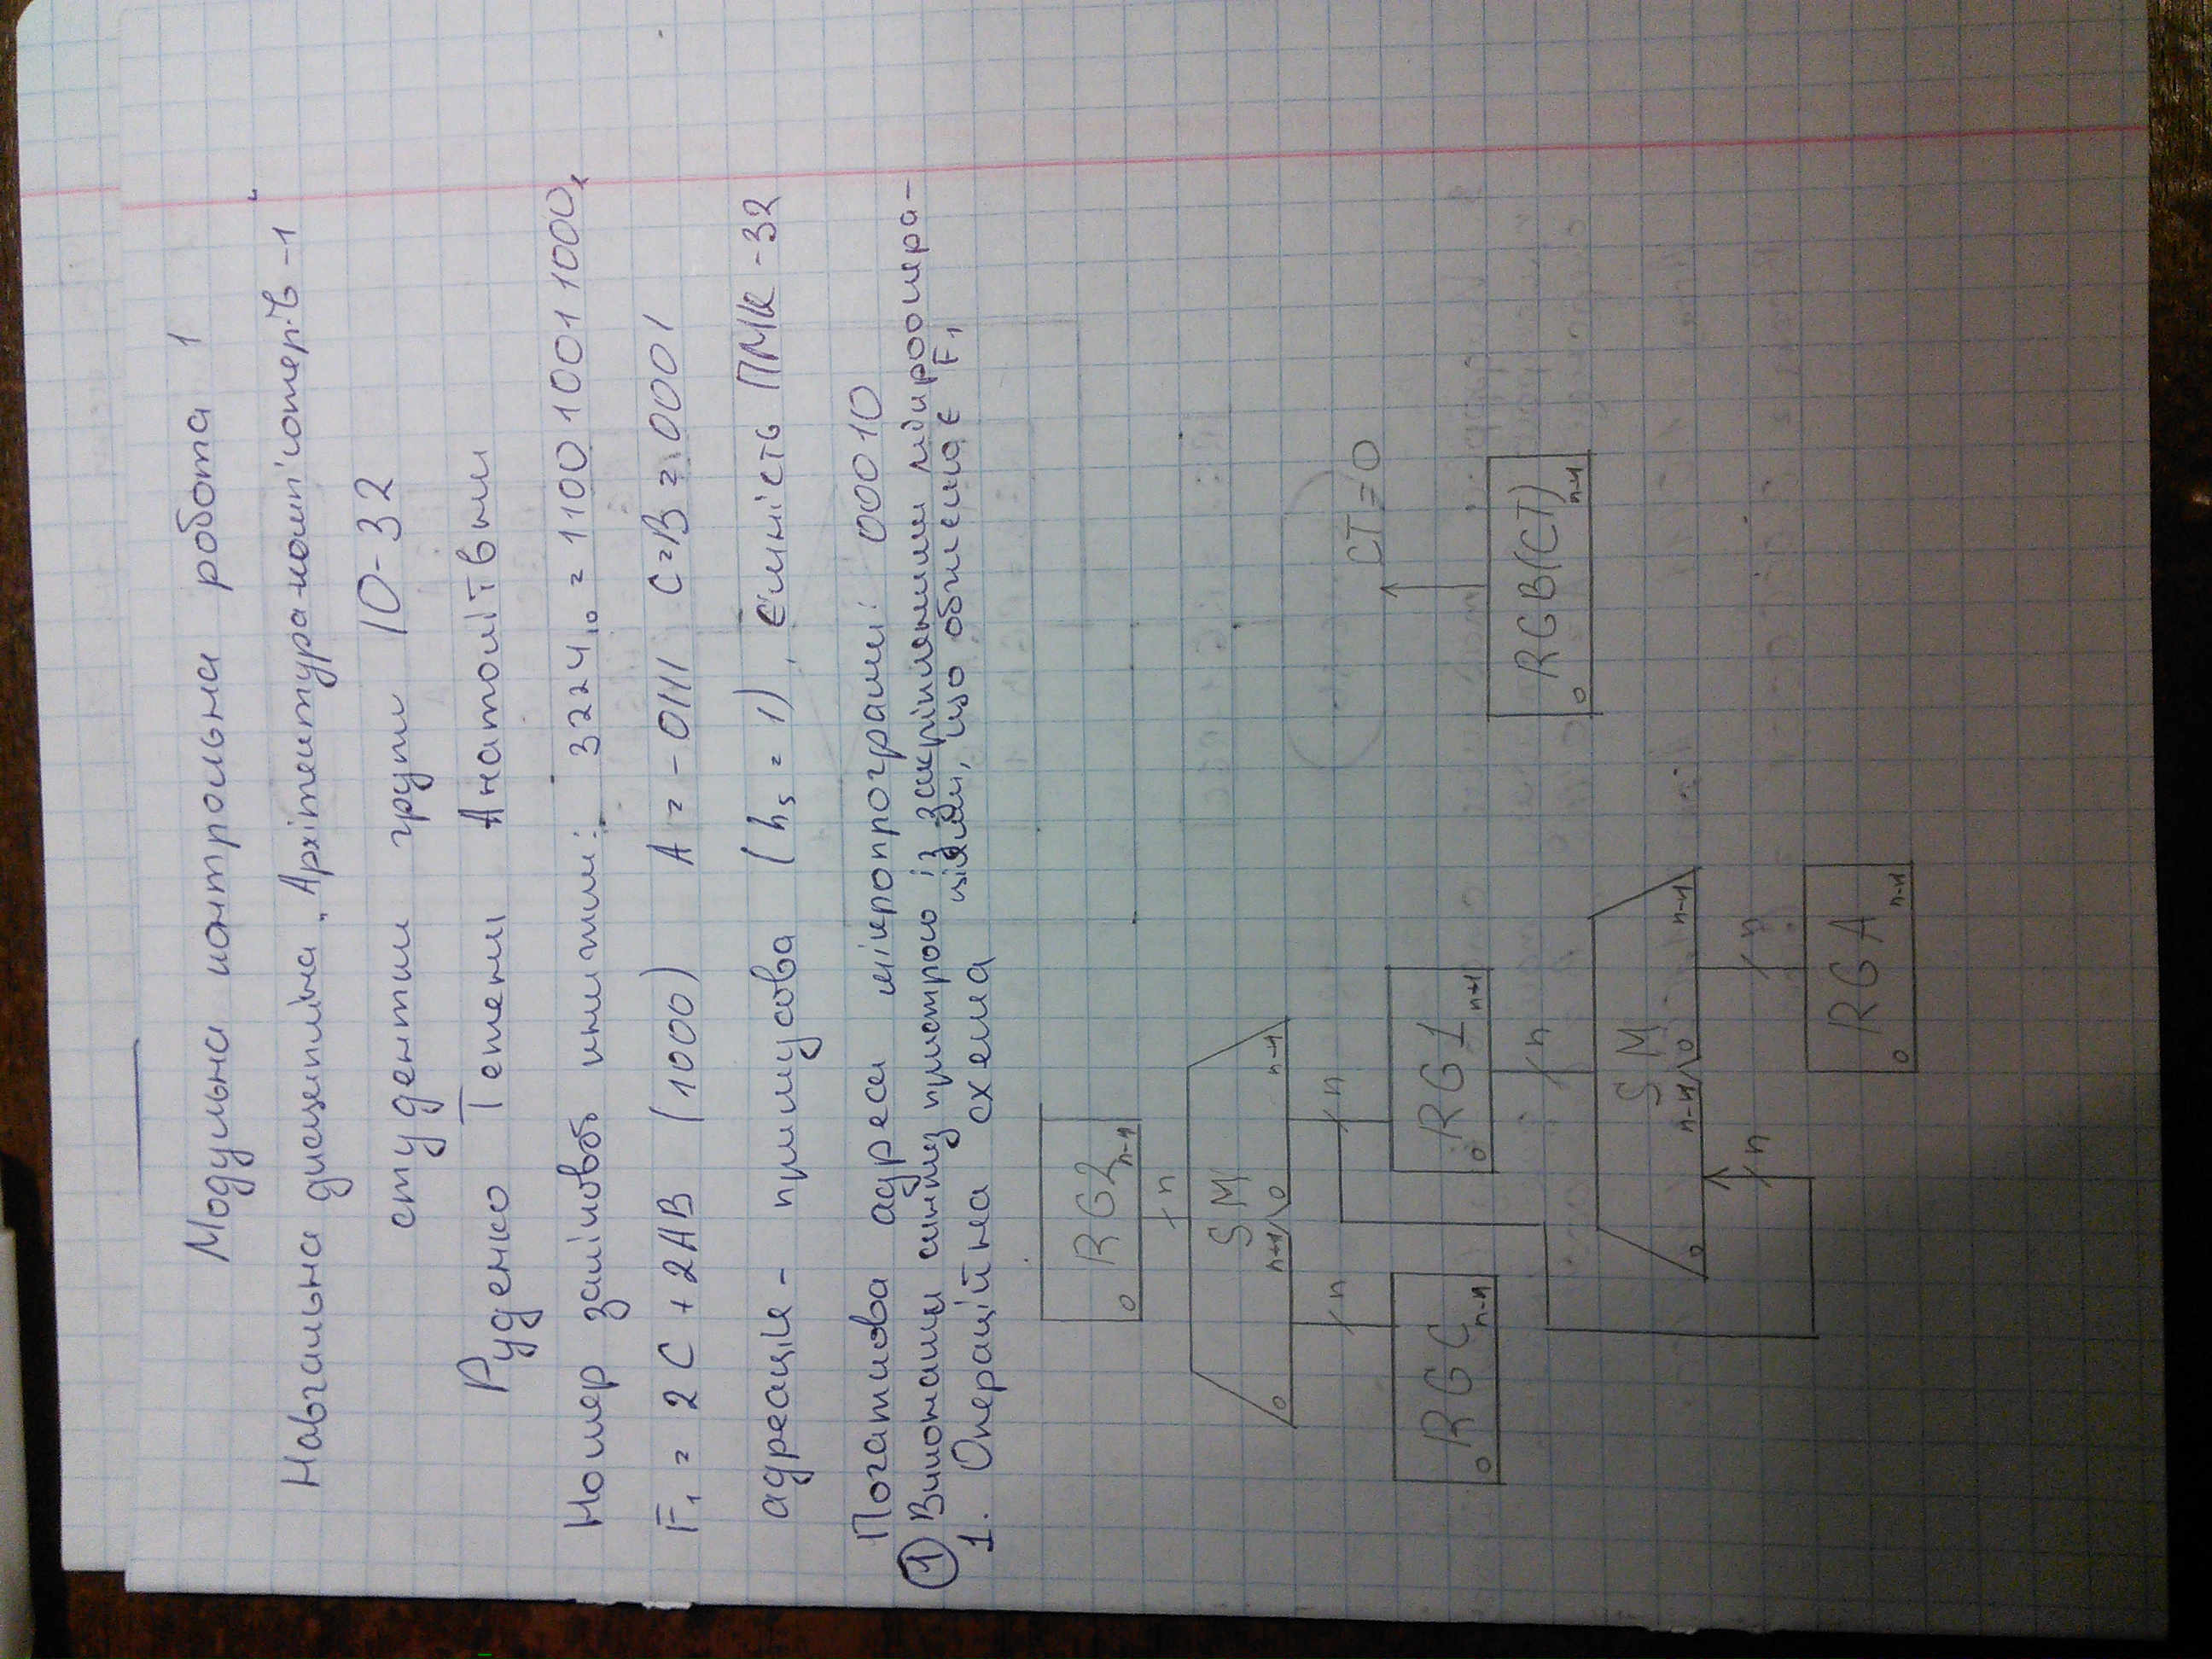 Модульна контрольна робота 1
Навчальна дисципліна „Архітектура комп'ютерів -1"
студентки групи ІО-32
Руденко Тетяни Анатоліївни
Номер залікової книжки: 3224₁₀ = 110010011000₂
F₁ = 2C + 2AB (1000) A = -0111 C=B = 0001
адресація - примусова (h₅ = 1), ємність ПМК -32
Початкова адреса мікропрограми: 00010
① Виконати синтез пристрою із закріпленими мікроопера-
ціями, що обчислює F₁
1. Операційна схема
0 RG2 n-1
n
CT=0
SM
0 n+1 0 n-1
n n
0 RGC n-1
0 RG1 n+1
0 RGB(CT) n-1
n
SM
0 n-1 0 n-1
n n
0 RGA n-1